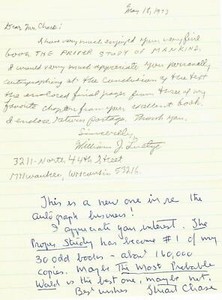 May 18, 1973
Dear Mr. Chase:
I have very much enjoyed your very fine
book THE PROPER STUDY OF MANKIND.
I would very much appreciate your personally
autographing at the conclusion of the text
the enclosed final pages from three of my
favorite chapters from your excellent book.
I enclose return postage. Thank you.
Sincerely,
William J.
3211 North 44th Street
Milwaukee, Wisconsin 53216
This is a new one in re the
autograph business!
I appreciate your interest. The
Proper Study has become #1 of my
30 odd books - about 160,000
copies. Maybe The Most Probable
World is the best one, maybe not.
Best wishes Stuart Chase